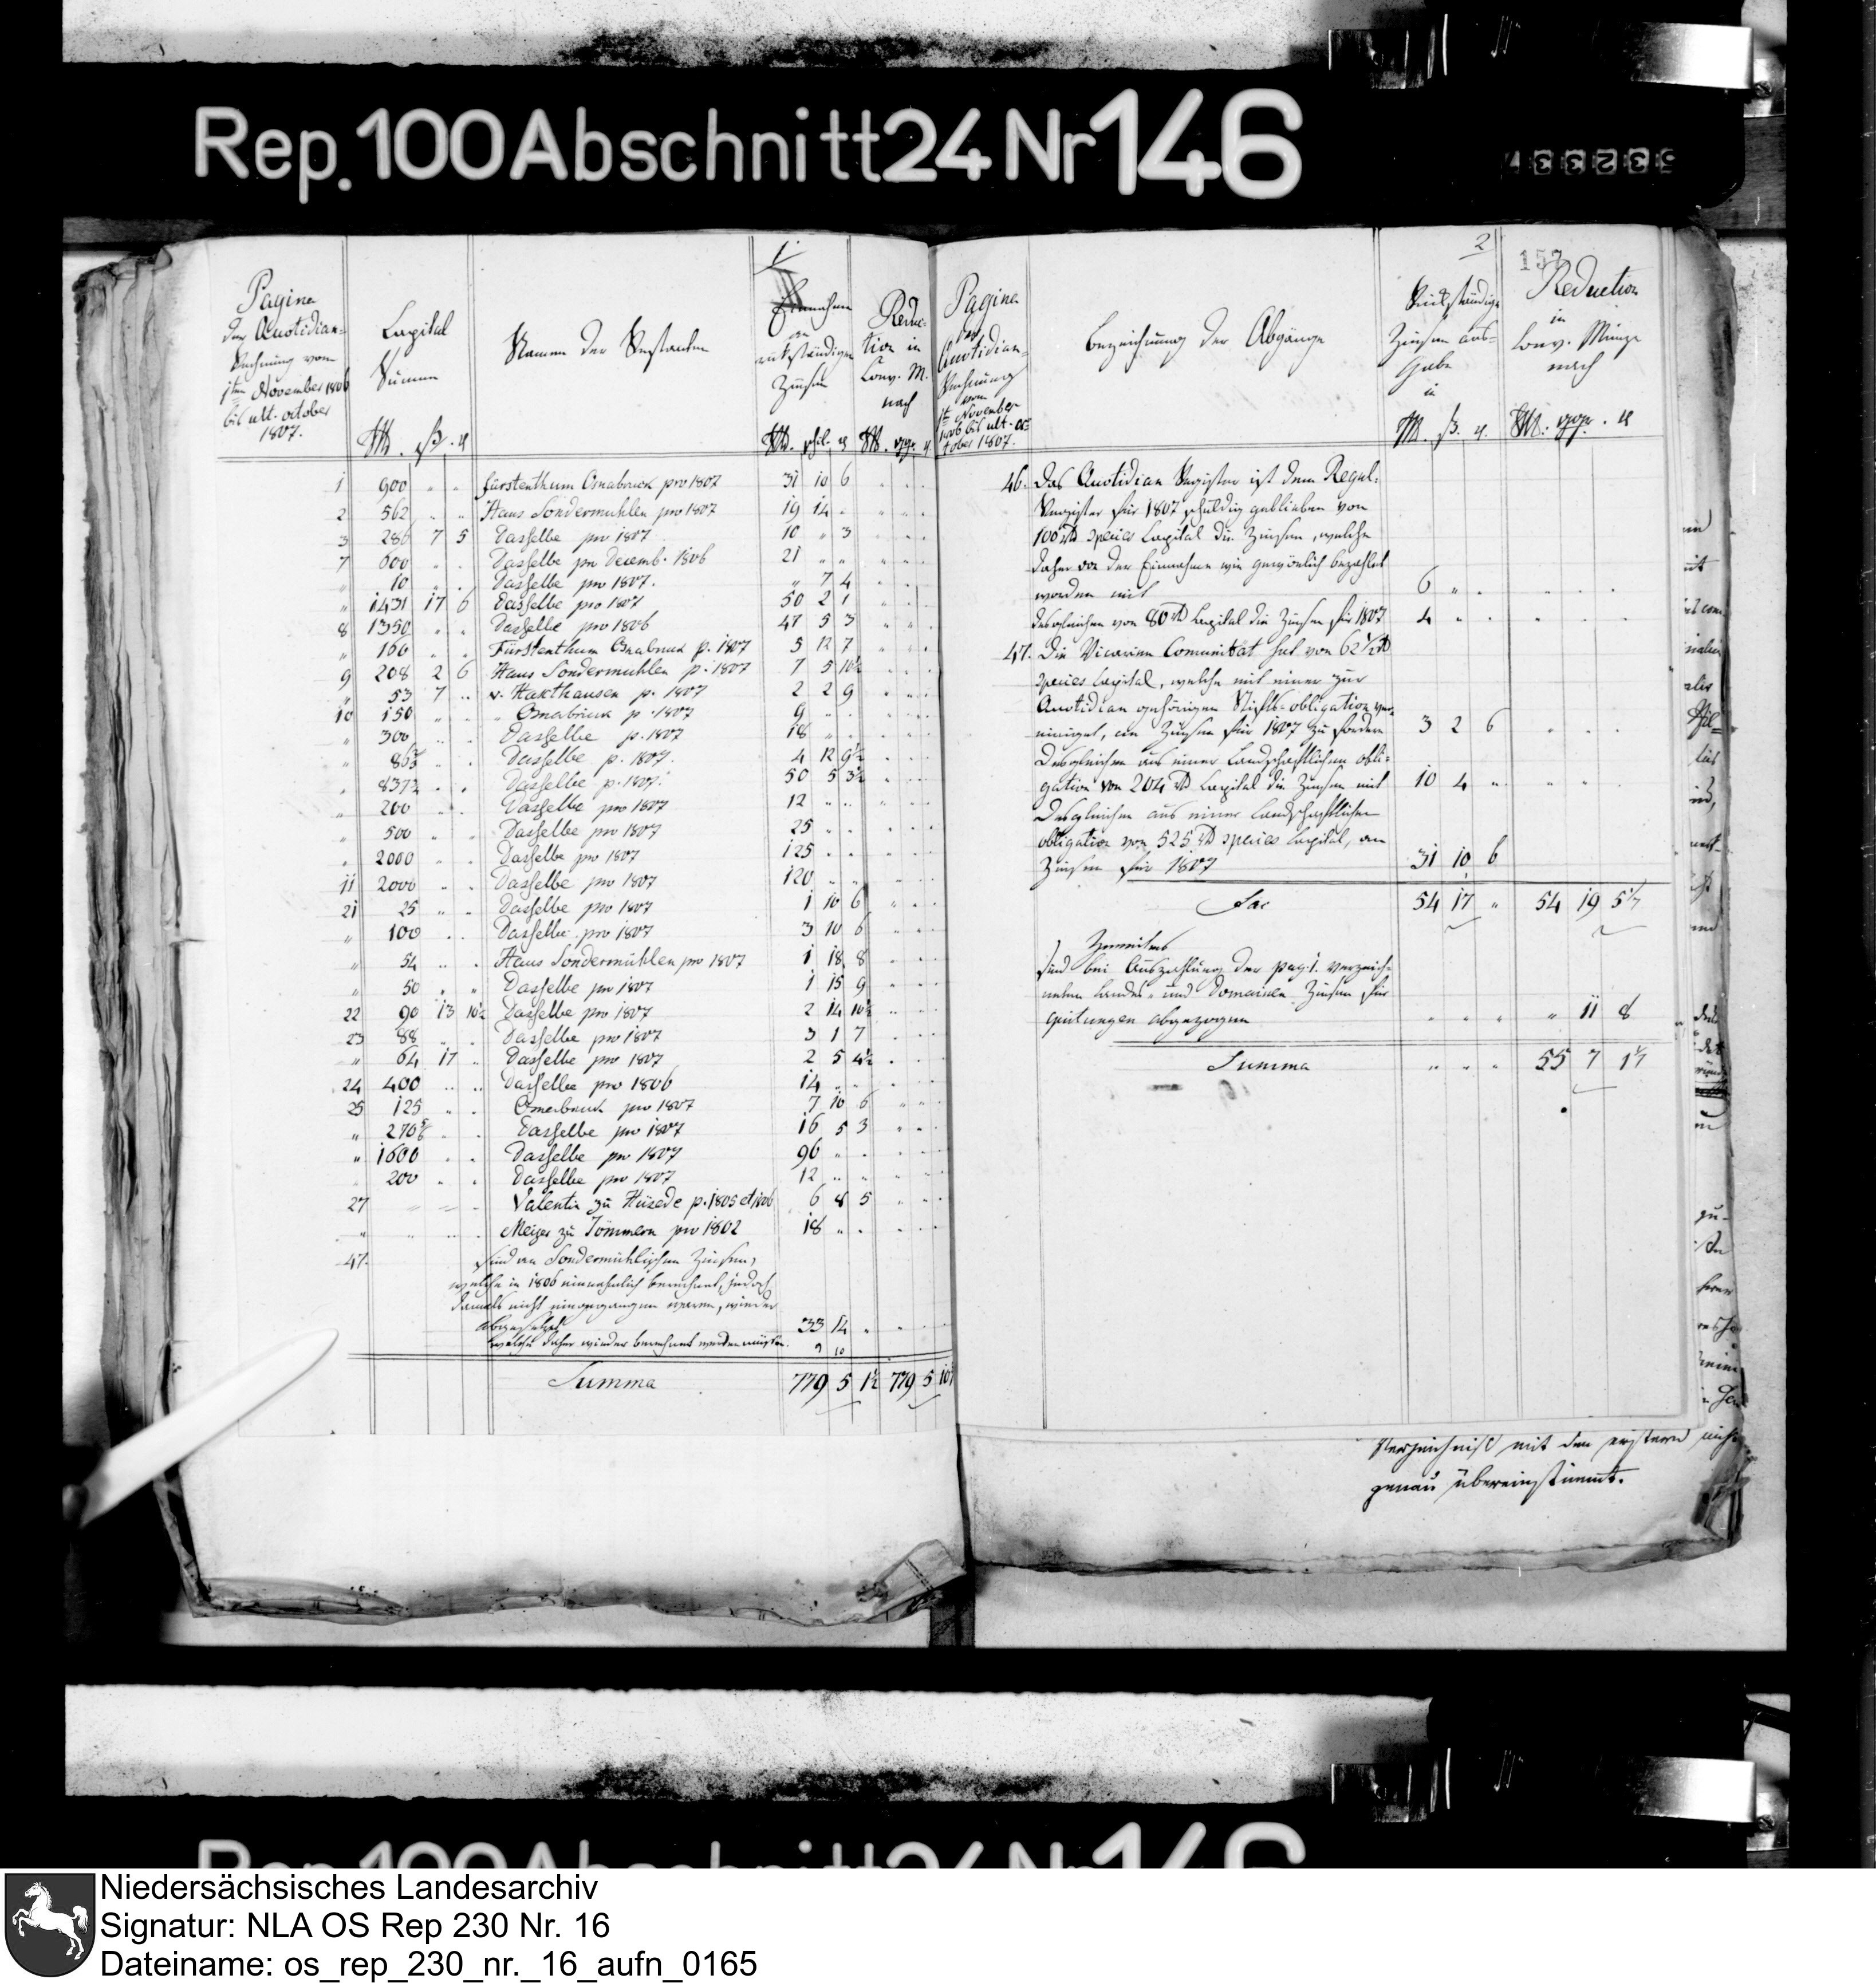 Rep. 100 Abschnitt 24 Nr 146
1.
Pagina
der Quotidian-
Rechnung vom
1ten November 1806
bis ult. october
1807.
Capital
Summe
Namen der Restanten
Einnahme
an
rükständigen
Zinsen
Reduc-
tion in
Conv. M.
nach
1 900 " " Fürstenthum Osnabruck pro 1807 31 10 6
2 562 " " Haus Sondermuhlen pro 1807 19 14 "
3 286 7 5 Dasselbe pro 1807 10 " 3
7 600 " " Dasselbe pro Decemb. 1806 21 " "
" 10 " " Dasselbe pro 1807. " 7 4
" 1431 17 6 Dasselbe pro 1807 50 2 1
8 1350 " " Dasselbe pro 1806 47 5 3
" 166 " " Fürstenthum Osnabruck p. 1807 5 12 7
9 208 2 6 Haus Sondermuhlen p. 1807 7 5 10½
" 53 7 " v. Hakthausen p. 1807 2 2 9
10 150 " " Osnabrück p. 1807 9 " "
" 300 " " Dasselbe p. 1807 18 " "
" Dasselbe p. 1807. 4 12 9½
" 837½ " " Dasselbe p. 1807. 50 5 3½
" 200 " " Dasselbe pro 1807 12 " "
" 500 " " Dasselbe pro 1807 25 " "
" 2000 " " Dasselbe pro 1807 125 " "
11 2000 " " Dasselbe pro 1807 120 " "
21 25 " " Dasselbe pro 1807 1 10 6
" 100 " " Dasselbe pro 1807 3 10 6
" 54 " " Haus Sondermühlen pro 1807 1 18 8
" 50 " " Dasselbe pro 1807 1 15 9
22 90 13 10½ Dasselbe pro 1807 2 14 10½
23 88 " " Dasselbe pro 1807 3 1 7
" 64 17 " Dasselbe pro 1807 2 5 4½
24 400 " " Dasselbe pro 1806 14 " "
25 125 " " Osnabruck pro 1807 7 10 6
" 270⅚ " " Dasselbe pro 1807 16 5 3
" 1600 " " Dasselbe pro 1807 96 " "
" 200 " " Dasselbe pro 1807 12 " "
27 " " " Valentin zu Hüsede p. 1805 et 1806 6 8 5
" " " " Meijer zu Tömmern pro 1802 18 " "
47. sind an Sondermühlischen Zinsen,
welche in 1806 einnahmlich berechnet, jedoch
damals nicht eingegangen waren, wieder
abgesetzt 33 14 "
welche daher wieder berechnet werden müssen.
Summa 779 5 1½ 779 5
2
157
Pagina
der
Quotidian-
Rechnung
vom
1ten November
1806 bis ult. oc-
tober 1807.
Bezeichnung der Abgänge
Rückständige
Zinsen aus-
gabe
in
Reduction
in
Conv. Münze
nach
46. Das Quotidian Register ist dem Regul.
Register für 1807 schuldig geblieben von
100 rt species Capital die Zinsen, welche
daher von der Einnahme wie gewönlich bezahlet
worden mit 6 " "
desgleichen von 80 rt Capital die Zinsen für 1807 4 " "
47. Die Vicarien Communitat hat von 62½ rt
species Capital, welche mit einer zur
Quotidian gehörigen Stifts-obligation ver-
einiget, an Zinsen für 1807 zu fordern 3 2 6
Desgleichen aus einer Landschaftlichen obli-
gation von 204 rt Capital die Zinsen mit 10 4 "
Desgleichen aus einer Landschaftlichen
obligation von 525 rt species Capital, an
Zinsen für 1807 31 10 6
Lac 54 17 " 54 19 5⅐
sind bei Auszahlung der pag. 1. verzeich-
neten Landes- und Domainen Zinsen für
Quitungen abgezogen " 11 8
Summa " " " 55 7 1⅐
Verzeichniß mit den erstern nicht
genau übereinstimmt.
Rep. 100 Abschnitt 24 Nr 146
Niedersächsisches Landesarchiv
Signatur: NLA OS Rep 230 Nr. 16
Dateiname: os_rep_230_nr._16_aufn_0165